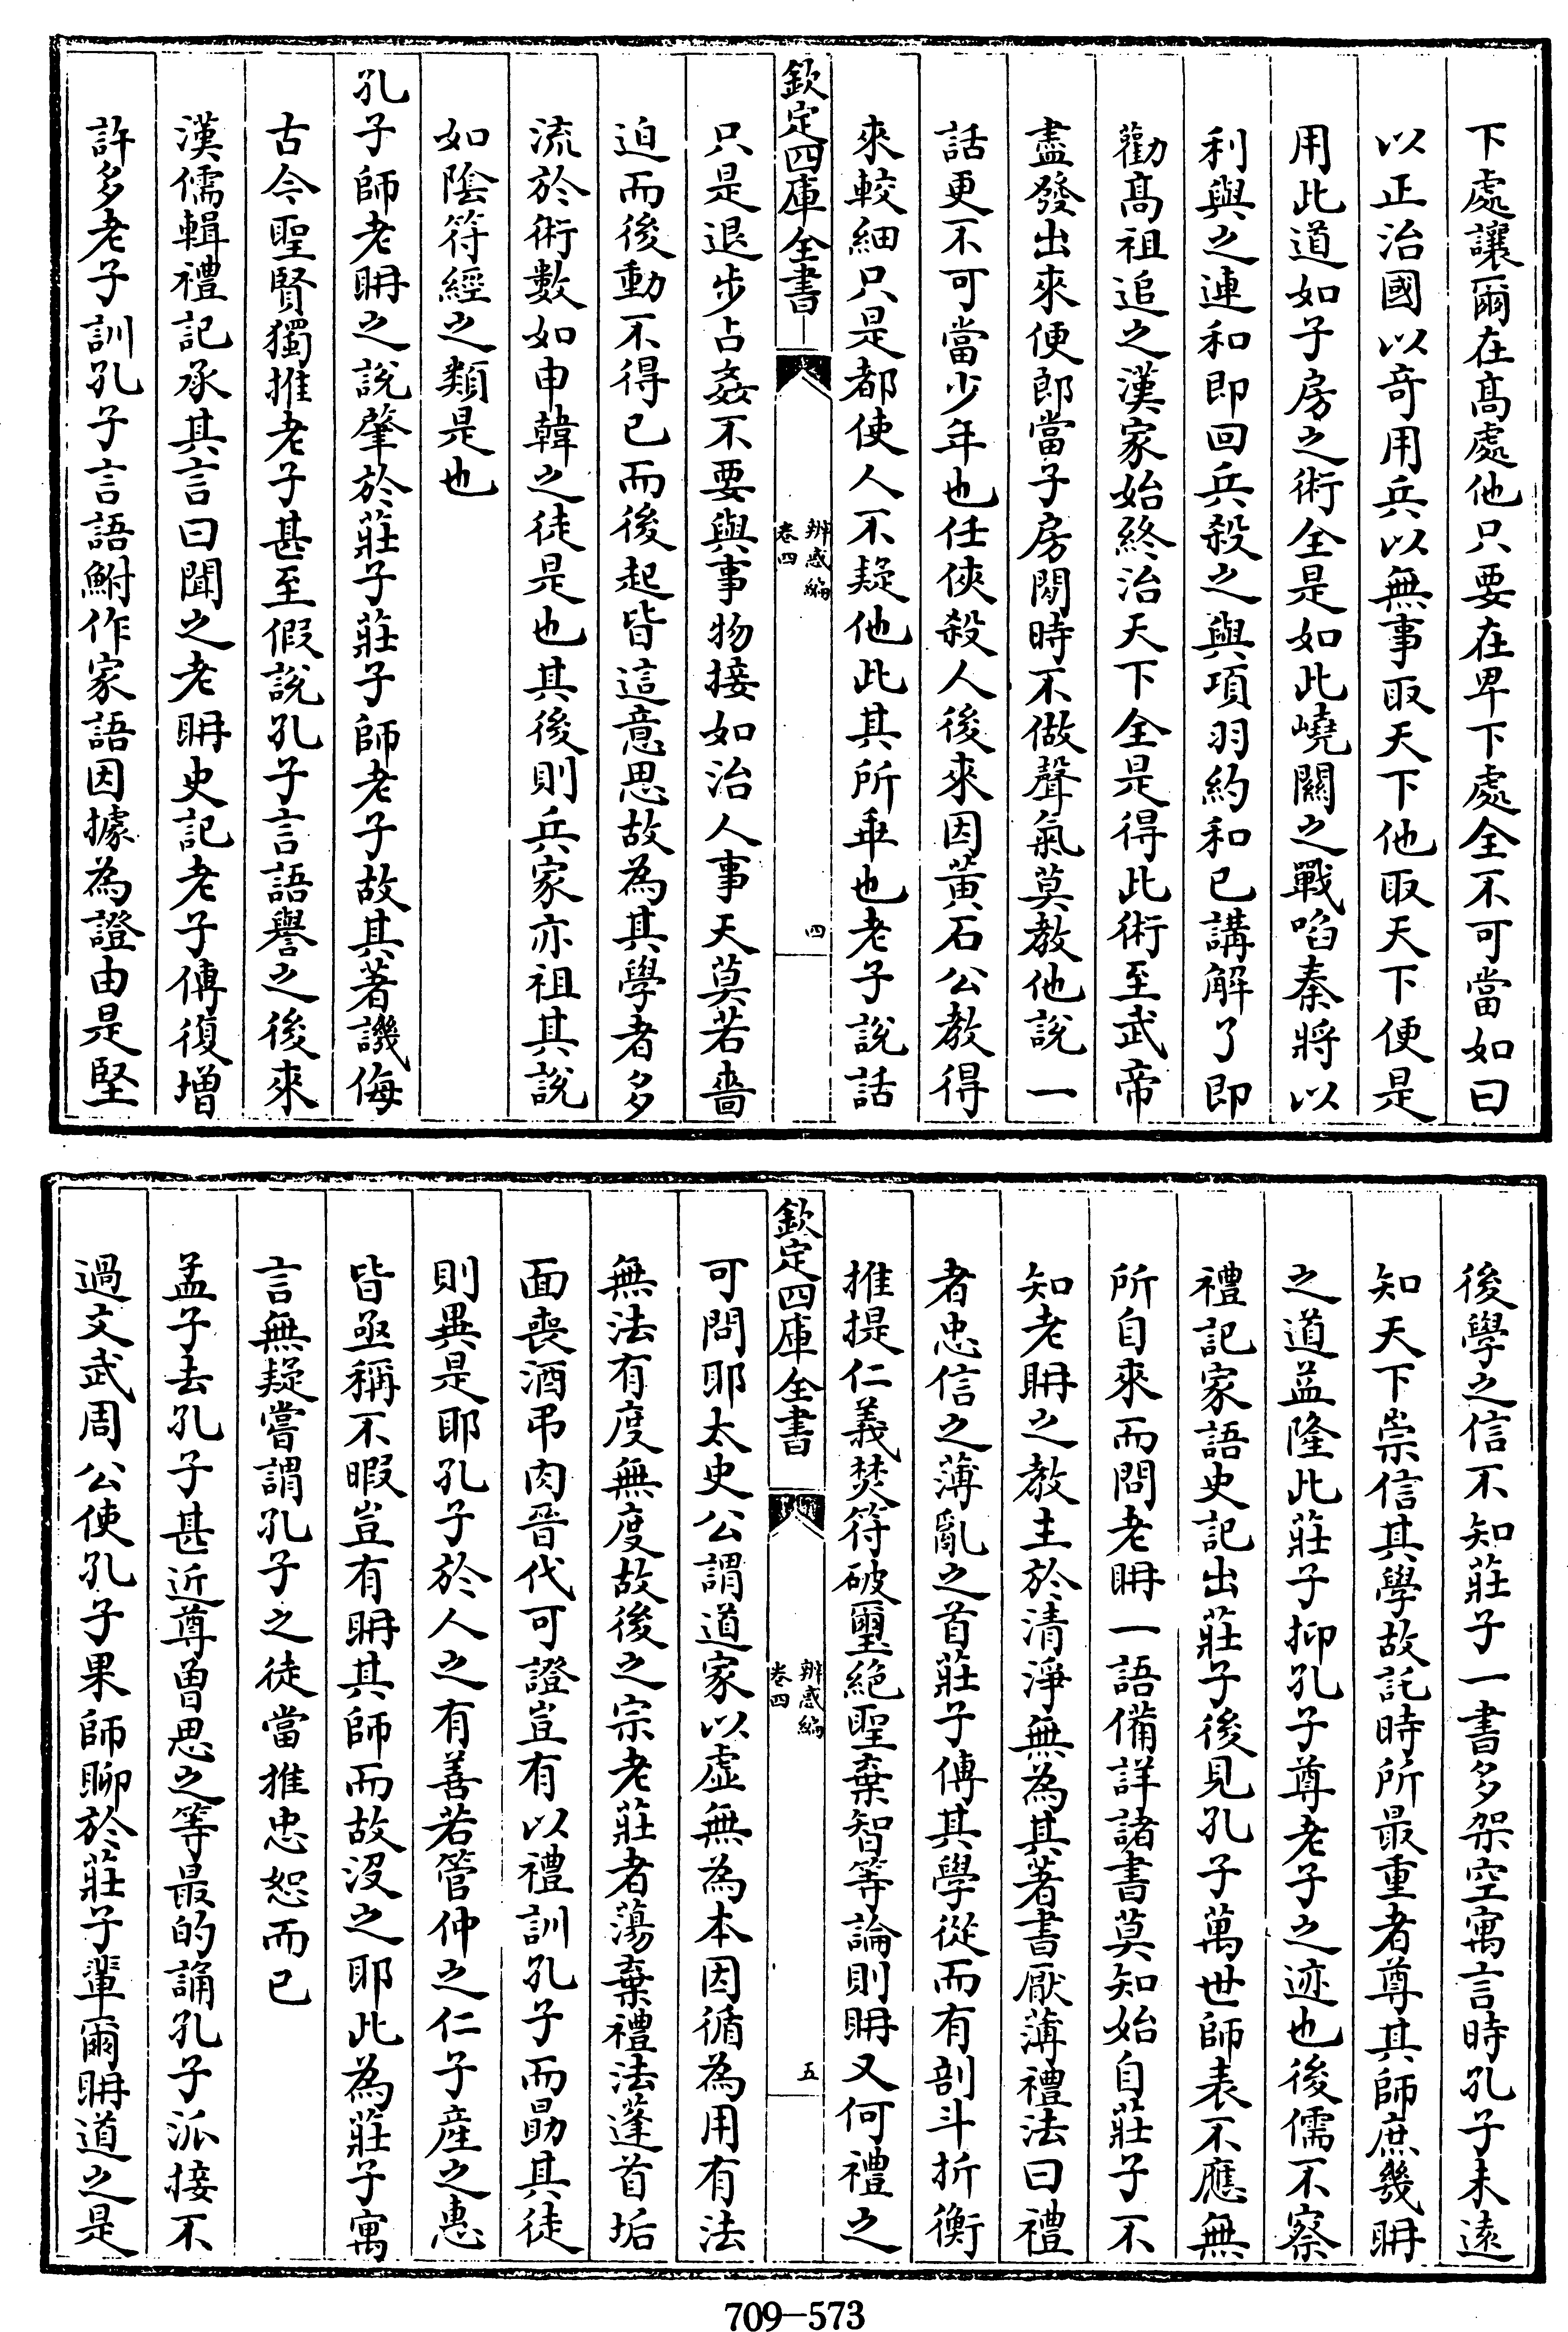 下處讓爾在髙處他只要在卑下處全不可當如曰
以正治國以竒用兵以無事取天下他取天下便是
用此道如子房之術全是如此嶢關之戰啗秦將以
利與之連和即回兵殺之與項羽約和已講解了即
勸髙祖追之漢家始終治天下全是得此術至武帝
盡發出來便郎當子房閒時不做聲氣莫教他說一
話更不可當少年也任俠殺人後來因黃石公教得
來較細只是都使人不疑他此其所乖也老子說話
欽定四庫全書
辨惑編
卷四
四
只是退步占姦不要與事物接如治人事天莫若嗇
迫而後動不得已而後起皆這意思故為其學者多
流於術數如申韓之徒是也其後則兵家亦祖其說
如隂符經之類是也
孔子師老耼之說肇於莊子莊子師老子故其著譏侮
古今聖賢獨推老子甚至假說孔子言語譽之後來
漢儒輯禮記承其言曰聞之老耼史記老子傳復增
許多老子訓孔子言語鮒作家語因據為證由是堅
後學之信不知莊子一書多架空寓言時孔子未遠
知天下崇信其學故託時所最重者尊其師庶幾耼
之道益隆此莊子抑孔子尊老子之迹也後儒不察
禮記家語史記出莊子後見孔子萬世師表不應無
所自來而問老耼一語備詳諸書莫知始自莊子不
知老耼之教主於清淨無為其著書厭薄禮法曰禮
者忠信之薄亂之首莊子傳其學從而有剖斗折衡
推提仁義焚符破璽絶聖棄智等論則耼又何禮之
欽定四庫全書
辨惑編
卷四
五
可問耶太史公謂道家以虛無為本因循為用有法
無法有度無度故後之宗老莊者蕩棄禮法蓬首垢
面喪酒弔肉晉代可證豈有以禮訓孔子而勗其徒
則異是耶孔子於人之有善若管仲之仁子產之惠
皆亟稱不暇豈有耼其師而故沒之耶此為莊子寓
言無疑嘗謂孔子之徒當推忠恕而已
孟子去孔子甚近尊曾思之等最的誦孔子派接不
過文武周公使孔子果師聊於莊子輩爾耼道之是
709-573